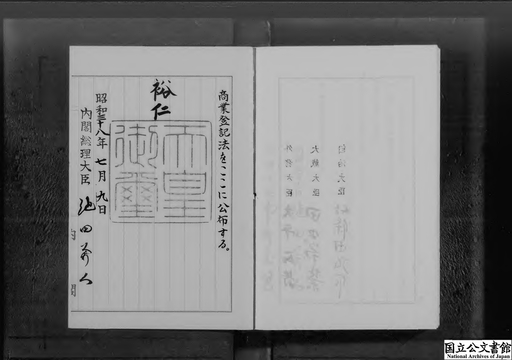 商業登記法をここに公布する。
裕仁
天皇
御璽
昭和三十八年七月九日
内閣総理大臣 池田勇人
自治大臣
大蔵大臣
外務大臣
国立公文書館
National Archives of Japan